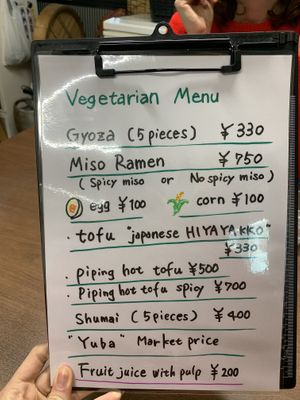 Vegetarian Menu
Gyoza (5 pieces) ¥330
Miso Ramen ¥750
(Spicy miso or No spicy miso)
egg ¥100 corn ¥100
・tofu "japanese HIYAYAKKO" ¥330
・piping hot tofu ¥500
・Piping hot tofu spicy ¥700
Shumai (5 pieces) ¥400
"Yuba" Market price
Fruit juice with pulp ¥200